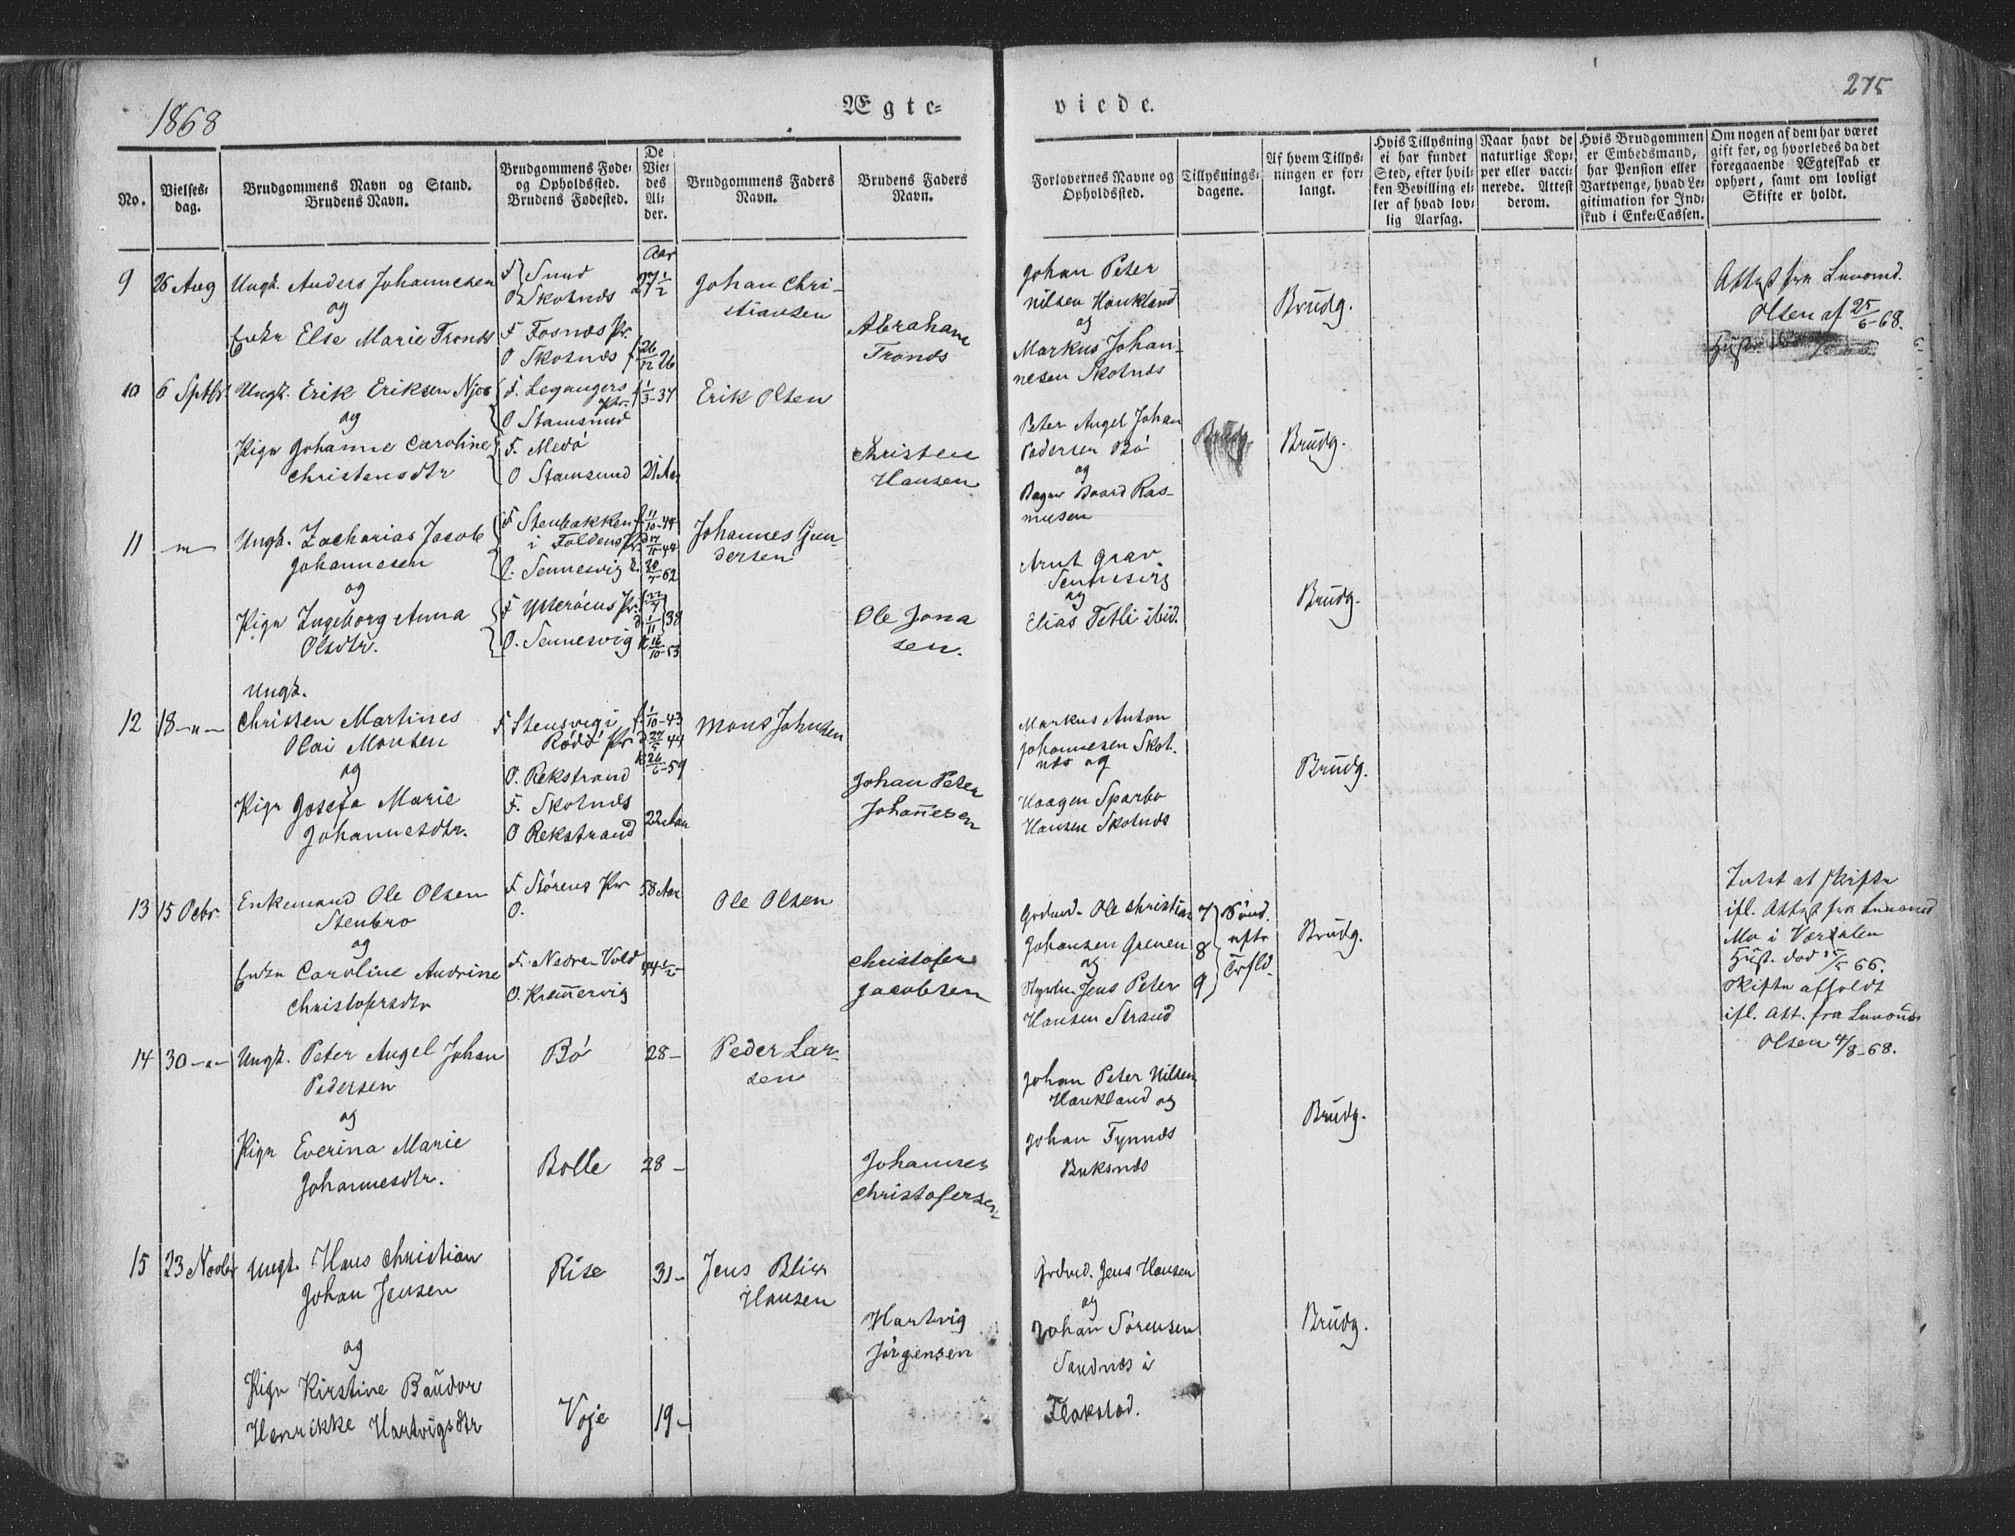 1868
Ægte=
viede.
275
No.
Vielses=
dag.
Brudgommens Navn og Stand.
Brudens Navn.
Brudgommens Føde=
og Opholdssted.
Brudens Fødested.
De
Vie=
des
Al=
der.
Brudgommens Faders
Navn.
Brudens Faders
Navn.
Forlovernes Navne og
Opholdssted.
Tillysnings=
dagene.
Af hvem Tillys=
ningen er for=
langt.
Hvis Tillysning
ei har fundet
Sted, efter hvil=
ken Bevilling el=
ler af hvad lov=
lig Aarsag.
Naar havt de
naturlige Kop=
per eller vacci=
nerede. Attest
derom.
Hvis Brudgommen
er Embedsmand,
har Pension eller
Vartpenge, hvad Le=
gitimation for Ind=
skud i Enke=Cassen.
Om nogen af dem har været
gift før, og hvorledes da det
foregaaende Ægteskab er
ophørt, samt om lovligt
Skifte er holdt.
9
26 Aug
Ungk. Anders Johannesen
og
Enke Else Marie Tronds
F Sund
O Skotnæs
F Fosnæs Pr.
O Skotnæs
Aar
27 1/2
f 26/12 26
Johan Chri-
stiansen
Abraham
Tronds
Johan Peter
Nilsen Haukland
og
Markus Johan-
nesen Skotnæs
Brudg.
Attest fra Lensmd.
Olsen af 25/6-68.
10
6 Sptbr.
Ungk. Erik Eriksen Njøs
og
Pige Johanne Caroline
Christensdtr
F. Leganger
Pr.
O Stamsund
F. Medø
O Stamsund
f 1/3-37
21 Aar
Erik Olsen
Christen
Hansen
Peter Angel Johan
Pedersen Bø
og
Bager Baard Ras-
musen
Brudg.
Brudg.
11
—"—
Ungk. Zacharias Jacob
Johannesen
og
Pige Ingeborg Anna
Olsdtr.
F Stenbakken
i Foldens Pr
O. Sennesvig
F Ytterøens Pr.
O. Sennesvig
f 11/10-44
d 17/11-44
k. 20/7-62
f 22/9
d 1/11 38
k 16/10-53
Johannes Gun-
dersen
Ole Jona
sen.
Arnt Grav
Sennesvig
og
Elias Tetli ibid.
Brudg.
12
18 —"—
Ungk.
Christen Martines
Olai Monsen
og
Pige Josefa Marie
Johannesdtr.
F Stensvig i
Rødø Pr
O. Rekstrand
F. Skotnæs
O Rekstrand
f. 1/10-43
d 27/5 44
k 26/6-59
22 Aar
Mons Johnsen
Johan Peter
Johannesen
Markus Anton
Johannesen Skot.
næs og
Haagen Sparbo
Hansen Skotnæs
Brudg.
13
15 Octbr.
Enkemand Ole Olsen
Stenbro
og
Enke Caroline Andrine
Christofersdtr
F Størens Pr
O.
F. Nedre Vold
O. Kræmmervig
58 Aar
44 1/2-
Ole Olsen
Christofer
Jacobsen
Grdmd. Ole Christian
Johansen Grenen
og
Jens Peter
Hansen Strand
7
8
9
Sønd.
efter
Trfld.
Brudg.
Intet at skifte
ifl. Attest fra Lensmd
Mo i Værdalen
Hust. død 15/5 66.
Skifte afholdt
ifl. Att. fra Lensmd
Olsen 4/8-68.
14
30 —"—
Ungk. Peter Angel Johan
Pedersen
og
Pige Everina Marie
Johannesdtr.
Bø
Bolle
28 -
28 -
Peder Lar-
sen
Johannes
Christofersen
Johan Peter Nilsen
Haukland og
Johan Tynnæs
Buksnæs
Brudg.
15
23 Novbr
Ungk. Hans Christian
Johan Jensen
og
Pige Kirstine Baudor
Henrikke Hartvigsdtr
Rise
Voje
31 -
19 -
Jens Blix
Hansen
Hartvig
Jørgensen
Grdmd. Jens Hansen
og
Johan Sørensen
Sandnæs i
Flakstad.
Brudg.